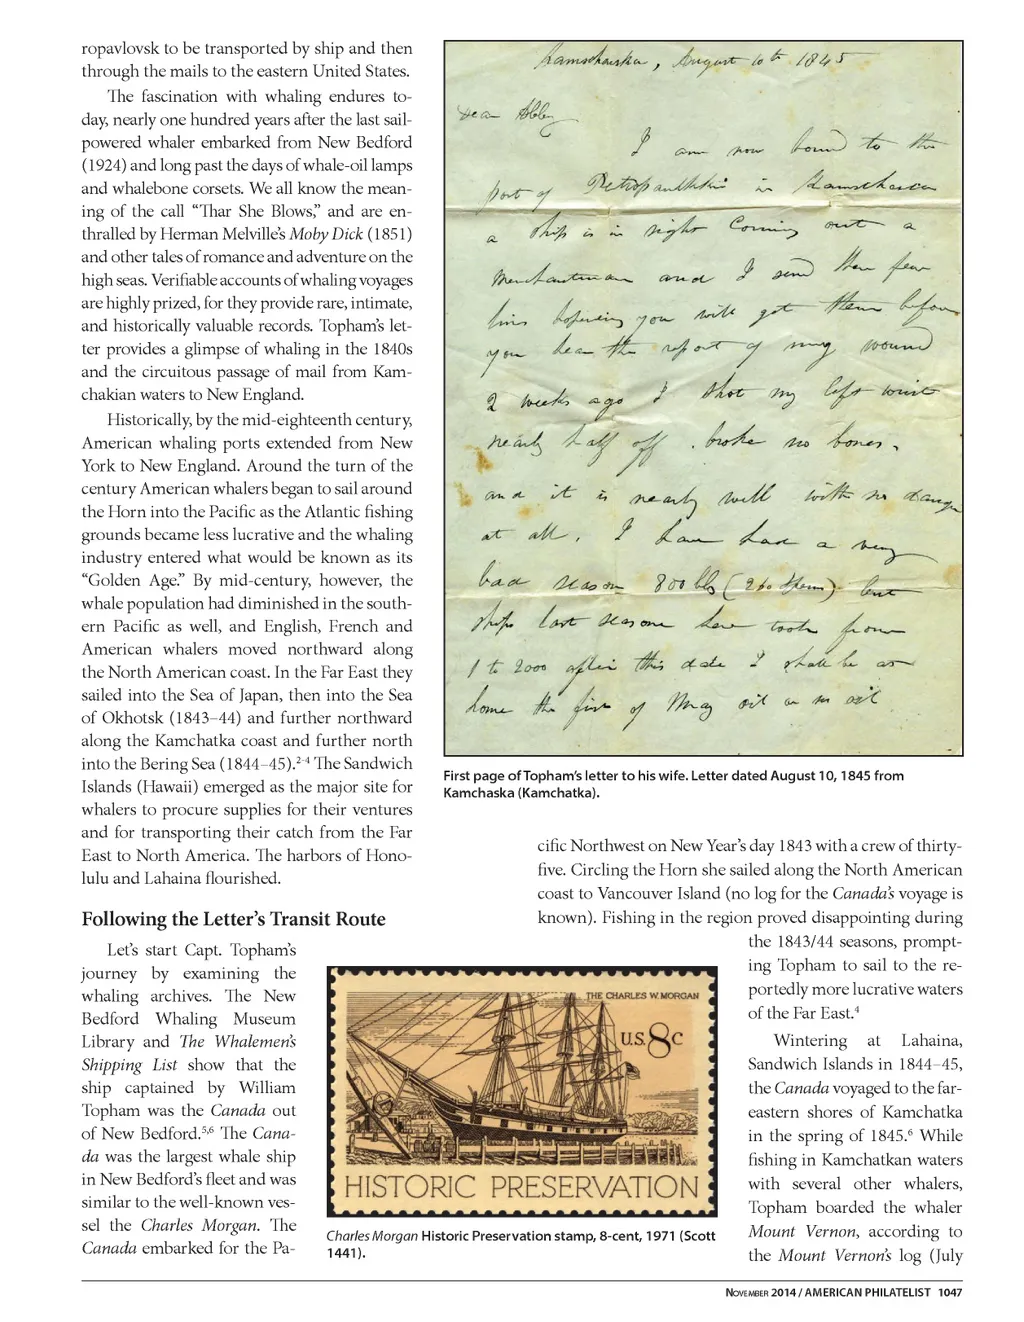 ropavlovsk to be transported by ship and then
through the mails to the eastern United States.
The fascination with whaling endures to-
day, nearly one hundred years after the last sail-
powered whaler embarked from New Bedford
(1924) and long past the days of whale-oil lamps
and whalebone corsets. We all know the mean-
ing of the call “Thar She Blows,” and are en-
thralled by Herman Melville’s Moby Dick (1851)
and other tales of romance and adventure on the
high seas. Verifiable accounts of whaling voyages
are highly prized, for they provide rare, intimate,
and historically valuable records. Topham’s let-
ter provides a glimpse of whaling in the 1840s
and the circuitous passage of mail from Kam-
chakian waters to New England.
Historically, by the mid-eighteenth century,
American whaling ports extended from New
York to New England. Around the turn of the
century American whalers began to sail around
the Horn into the Pacific as the Atlantic fishing
grounds became less lucrative and the whaling
industry entered what would be known as its
“Golden Age.” By mid-century, however, the
whale population had diminished in the south-
ern Pacific as well, and English, French and
American whalers moved northward along
the North American coast. In the Far East they
sailed into the Sea of Japan, then into the Sea
of Okhotsk (1843–44) and further northward
along the Kamchatka coast and further north
into the Bering Sea (1844–45).2-4 The Sandwich
Islands (Hawaii) emerged as the major site for
whalers to procure supplies for their ventures
and for transporting their catch from the Far
East to North America. The harbors of Hono-
lulu and Lahaina flourished.
Following the Letter’s Transit Route
Let’s start Capt. Topham’s
journey by examining the
whaling archives. The New
Bedford Whaling Museum
Library and The Whalemen’s
Shipping List show that the
ship captained by William
Topham was the Canada out
of New Bedford.5,6 The Cana-
da was the largest whale ship
in New Bedford’s fleet and was
similar to the well-known ves-
sel the Charles Morgan. The
Canada embarked for the Pa-
Kamschaska, August 10th 1845
Dear Abby
I am now bound to the
port of Petropaulthkie in Kamschaska
a ship is in sight Coming out a
Merchantman and I send these few
lines hopeing you will get them before
you hear the report of my wound
2 weeks ago I shot my left wrist
nearly half off . broke no bones,
and it is nearly well with no danger
at all. I have had a very
bad season 800 bls (260 Sperm) but
ships last seasone here took from
1 to 2000 after this date I shall be at
home the first of May oil or no oil
First page of Topham’s letter to his wife. Letter dated August 10, 1845 from
Kamchaska (Kamchatka).
THE CHARLES W. MORGAN
U.S. 8c
HISTORIC PRESERVATION
Charles Morgan Historic Preservation stamp, 8-cent, 1971 (Scott
1441).
cific Northwest on New Year’s day 1843 with a crew of thirty-
five. Circling the Horn she sailed along the North American
coast to Vancouver Island (no log for the Canada’s voyage is
known). Fishing in the region proved disappointing during
the 1843/44 seasons, prompt-
ing Topham to sail to the re-
portedly more lucrative waters
of the Far East.4
Wintering at Lahaina,
Sandwich Islands in 1844–45,
the Canada voyaged to the far-
eastern shores of Kamchatka
in the spring of 1845.6 While
fishing in Kamchatkan waters
with several other whalers,
Topham boarded the whaler
Mount Vernon, according to
the Mount Vernon’s log (July
NOVEMBER 2014 / AMERICAN PHILATELIST 1047